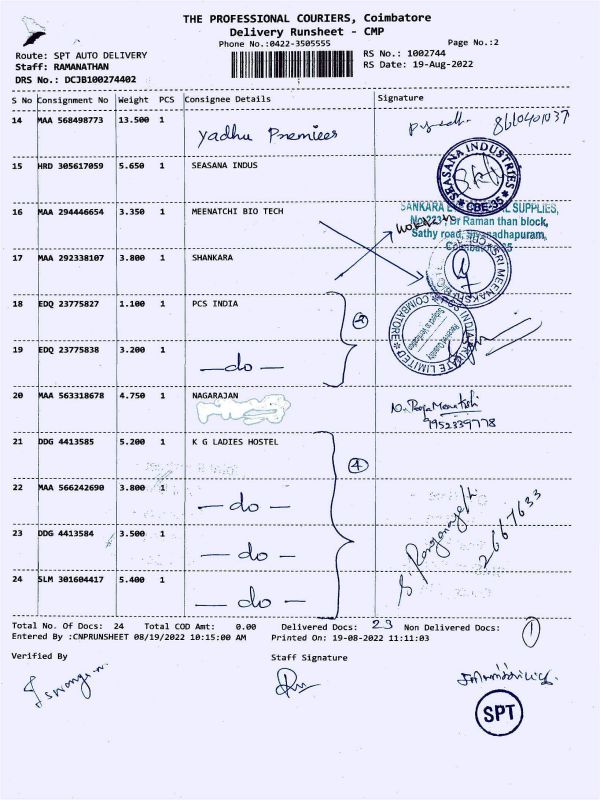 THE PROFESSIONAL COURIERS, Coimbatore
Delivery Runsheet - CMP
Phone No.:0422-3505555 Page No.:2
Route: SPT AUTO DELIVERY RS No.: 1002744
Staff: RAMANATHAN RS Date: 19-Aug-2022
DRS No.: DCJB100274402
S No Consignment No Weight PCS Consignee Details Signature
14 MAA 568498773 13.500 1 Yadhu Premiees 8610401037
15 HRD 305617059 5.650 1 SEASANA INDUS
SEASANA INDUSTRIES CBE-35
16 MAA 294446654 3.350 1 MEENATCHI BIO TECH
SUPPLIES,
Raman than block,
Sathy road, Sivanadhapuram,
17 MAA 292338107 3.800 1 SHANKARA
18 EDQ 23775827 1.100 1 PCS INDIA
PCS INDIA PRIVATE LIMITED COIMBATORE
19 EDQ 23775838 3.200 1 — do —
20 MAA 563318678 4.750 1 NAGARAJAN
9952339778
21 DDG 4413585 5.200 1 K G LADIES HOSTEL 4
22 MAA 566242690 3.800 1 — do —
23 DDG 4413584 3.500 1 — do — 2667633
24 SLM 301604417 5.400 1 — do —
Total No. Of Docs: 24 Total COD Amt: 0.00 Delivered Docs: 23 Non Delivered Docs: 1
Entered By :CNPRUNSHEET 08/19/2022 10:15:00 AM Printed On: 19-08-2022 11:11:03
Verified By Staff Signature
SPT